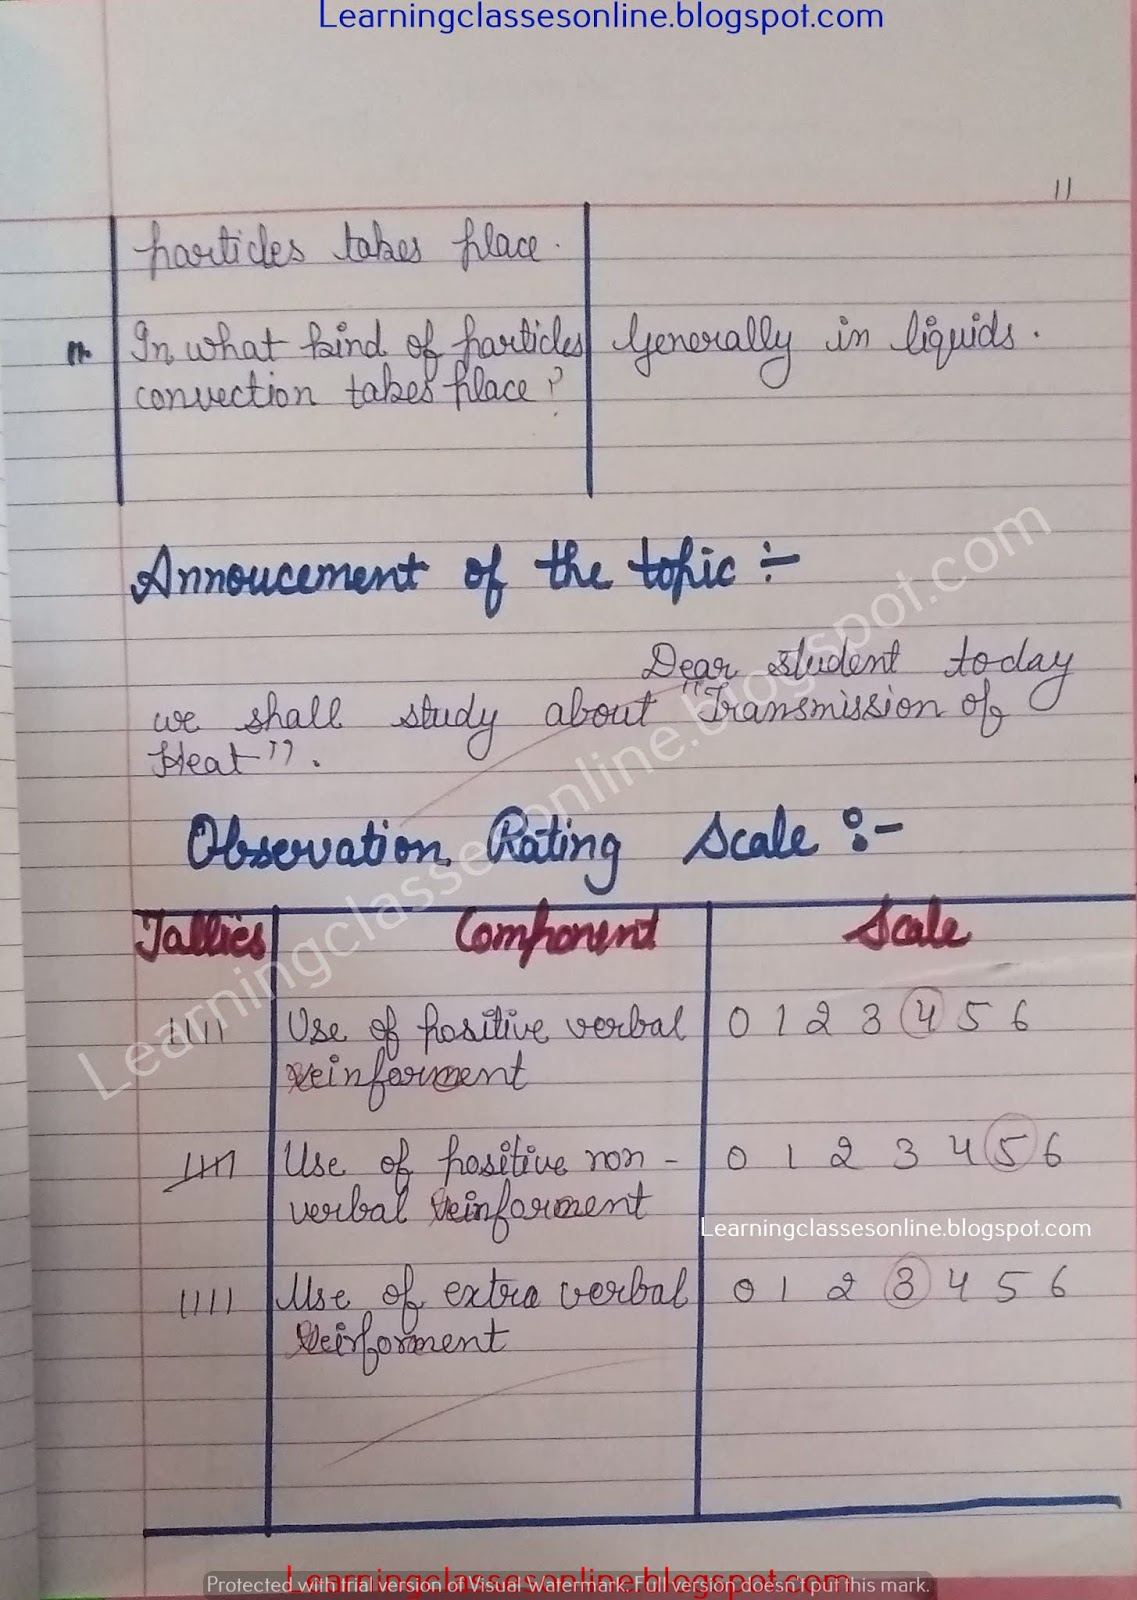 Learningclassesonline.blogspot.com
11
particles takes place.
In what kind of particles Generally in liquids.
convection takes place?
Annoucement of the topic :-
Dear student today
we shall study about "Transmission of
Heat".
Observation Rating Scale :-
Tallies Component Scale
|||| Use of positive verbal 0 1 2 3 4 5 6
reinforment
Use of positive non- 0 1 2 3 4 5 6
verbal reinforment
Learningclassesonline.blogspot.com
|||| Use of extra verbal 0 1 2 3 4 5 6
reinforment
Learningclassesonline.blogspot.com
Learningclassesonline.blogspot.com
Protected with trial version of Visual Watermark. Full version doesn't put this mark.